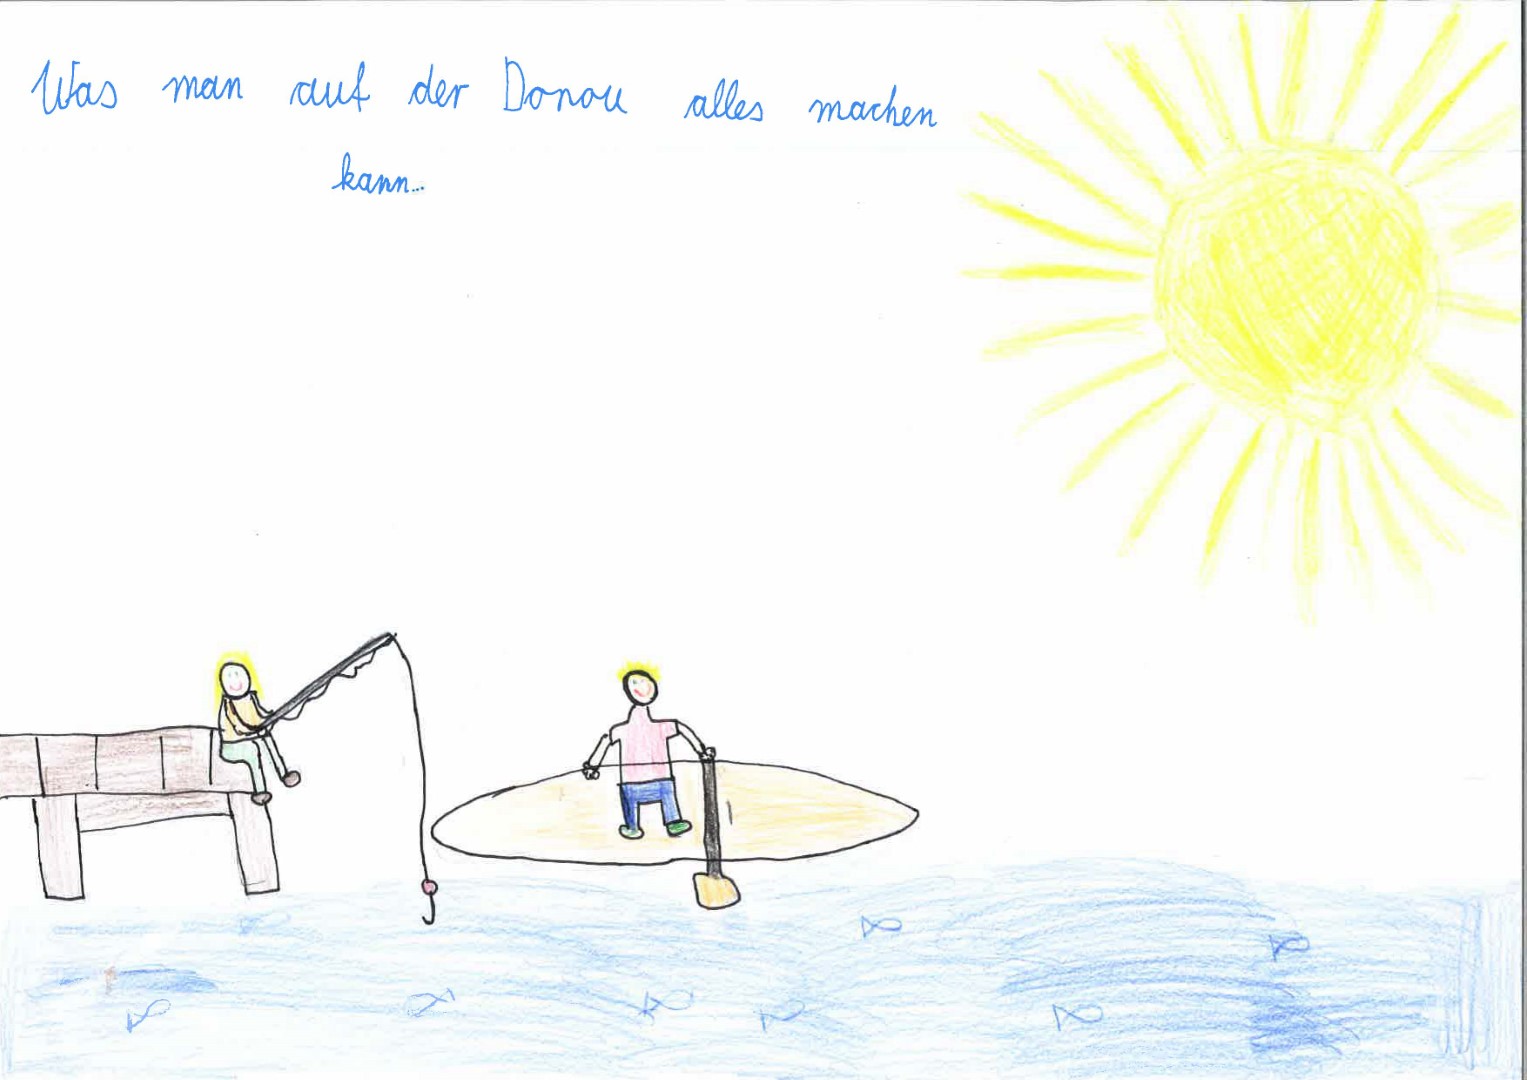 Was man auf der Donau alles machen
kann...